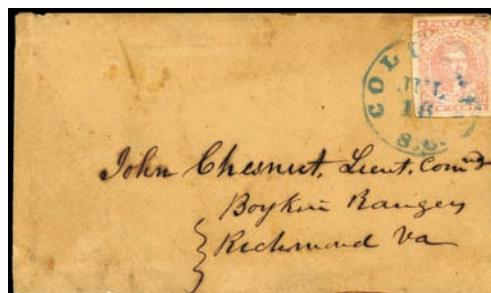 COL
JUL
16
S.C.
John Chesnut, Lieut. Comdg
Boykin Rangers
Richmond Va